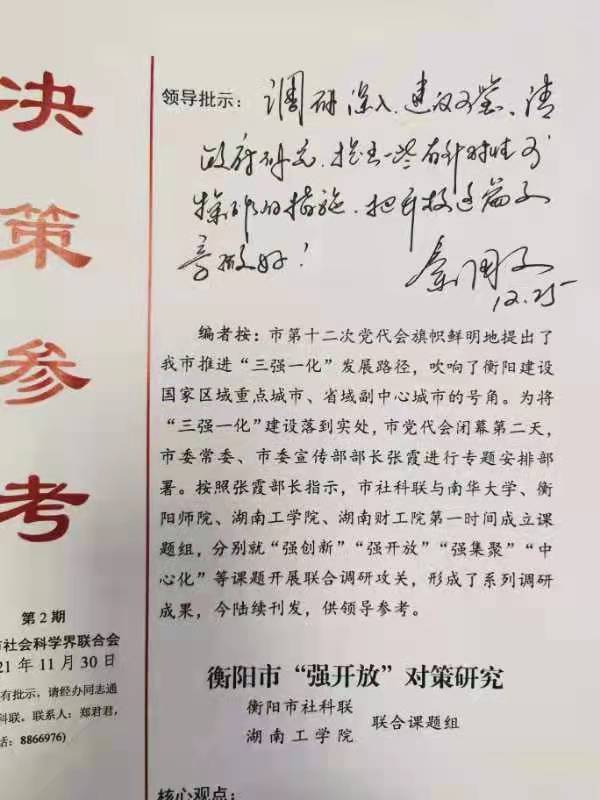 决
策
参
考
第 2 期
市社会科学界联合会
21 年 11 月 30 日
有批示,请经办同志通
科联。联系人:郑君君,
话:8866976)
领导批示:调研深入、建议可鉴、请
政府研究,提出一些有针对性可
操作的措施,把开放这篇文
章做好!
秦国文
12.25
编者按:市第十二次党代会旗帜鲜明地提出了
我市推进“三强一化”发展路径,吹响了衡阳建设
国家区域重点城市、省域副中心城市的号角。为将
“三强一化”建设落到实处,市党代会闭幕第二天,
市委常委、市委宣传部部长张霞进行专题安排部
署。按照张霞部长指示,市社科联与南华大学、衡
阳师院、湖南工学院、湖南财工院第一时间成立课
题组,分别就“强创新”“强开放”“强集聚”“中
心化”等课题开展联合调研攻关,形成了系列调研
成果,今陆续刊发,供领导参考。
衡阳市“强开放”对策研究
衡阳市社科联
湖南工学院
联合课题组
核心观点: